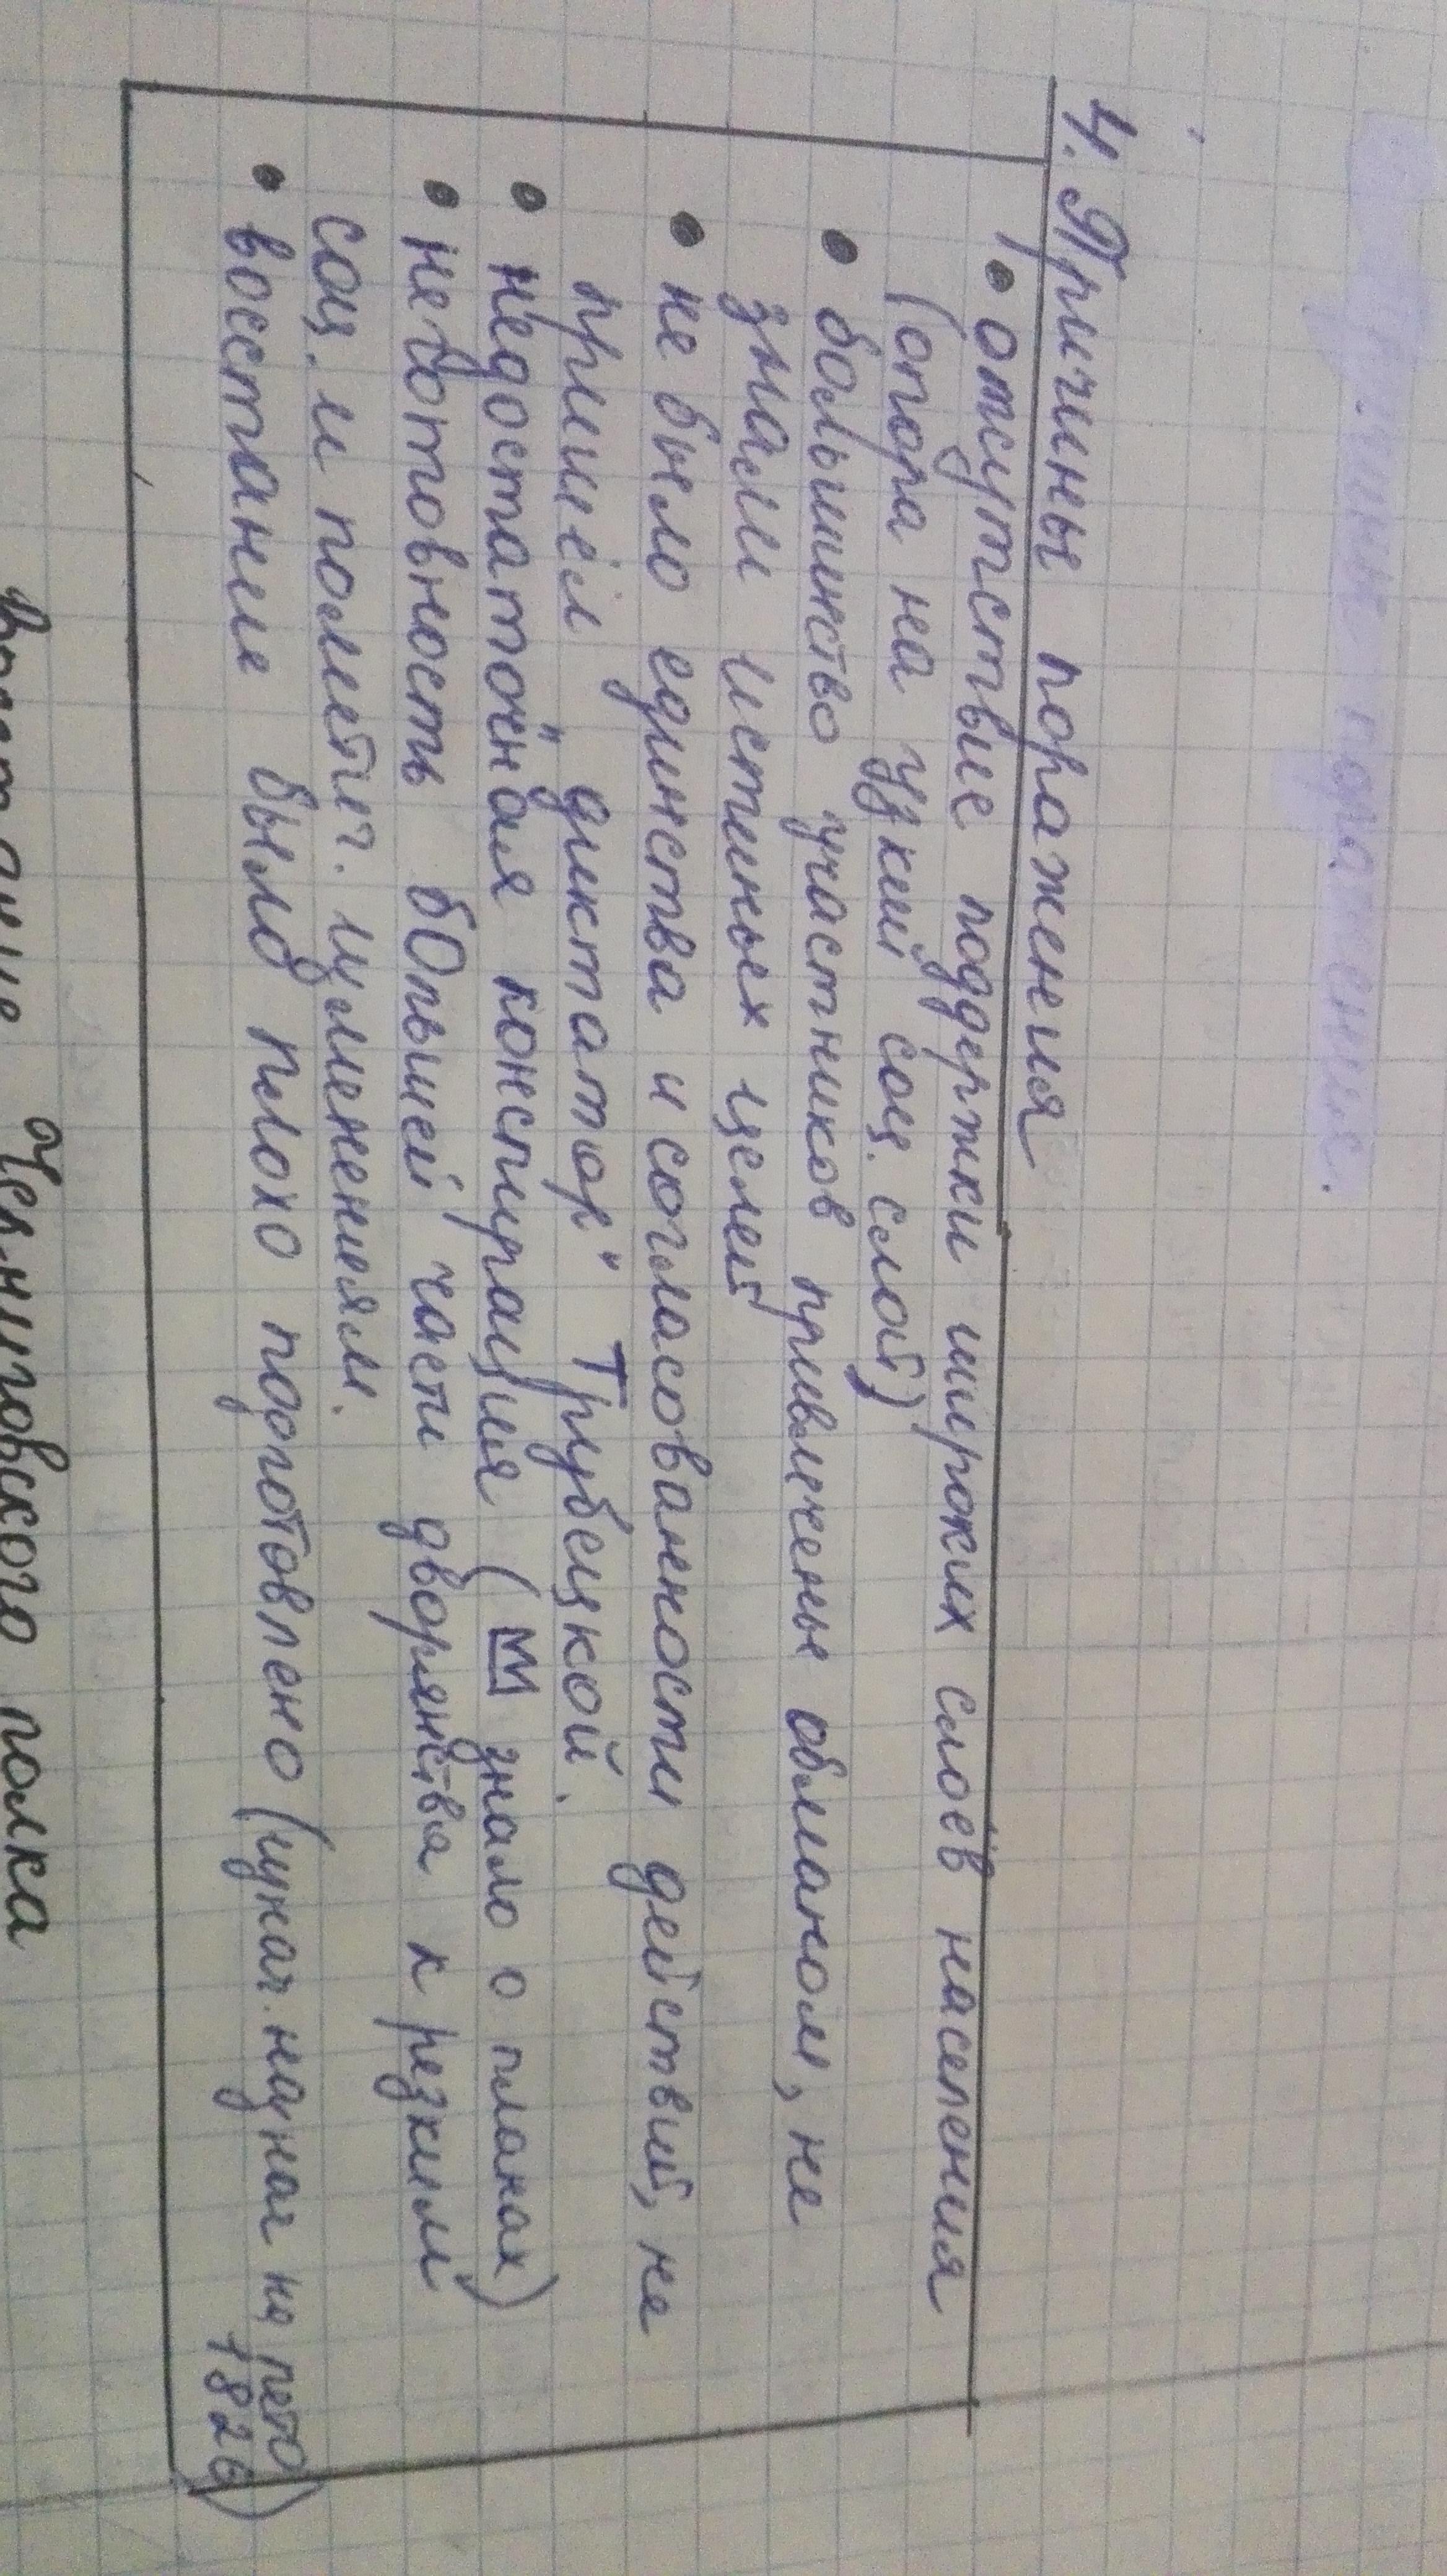 4. Причины поражения
• отсутствие поддержки широких слоёв населения
(опора на узкий соц. слой)
• большинство участников привлечены обманом, не
знали истиных целей
• не было единства и согласованности действий, не
пришёл "диктатор" Трубецкой.
• недостаточная конспирация ( знало о планах)
• неготовность бОльшей части дворянства к резким
соц. и политич. изменениям.
• восстание было плохо подготовлено (изнач. на лето
1826)
Черниговского полка